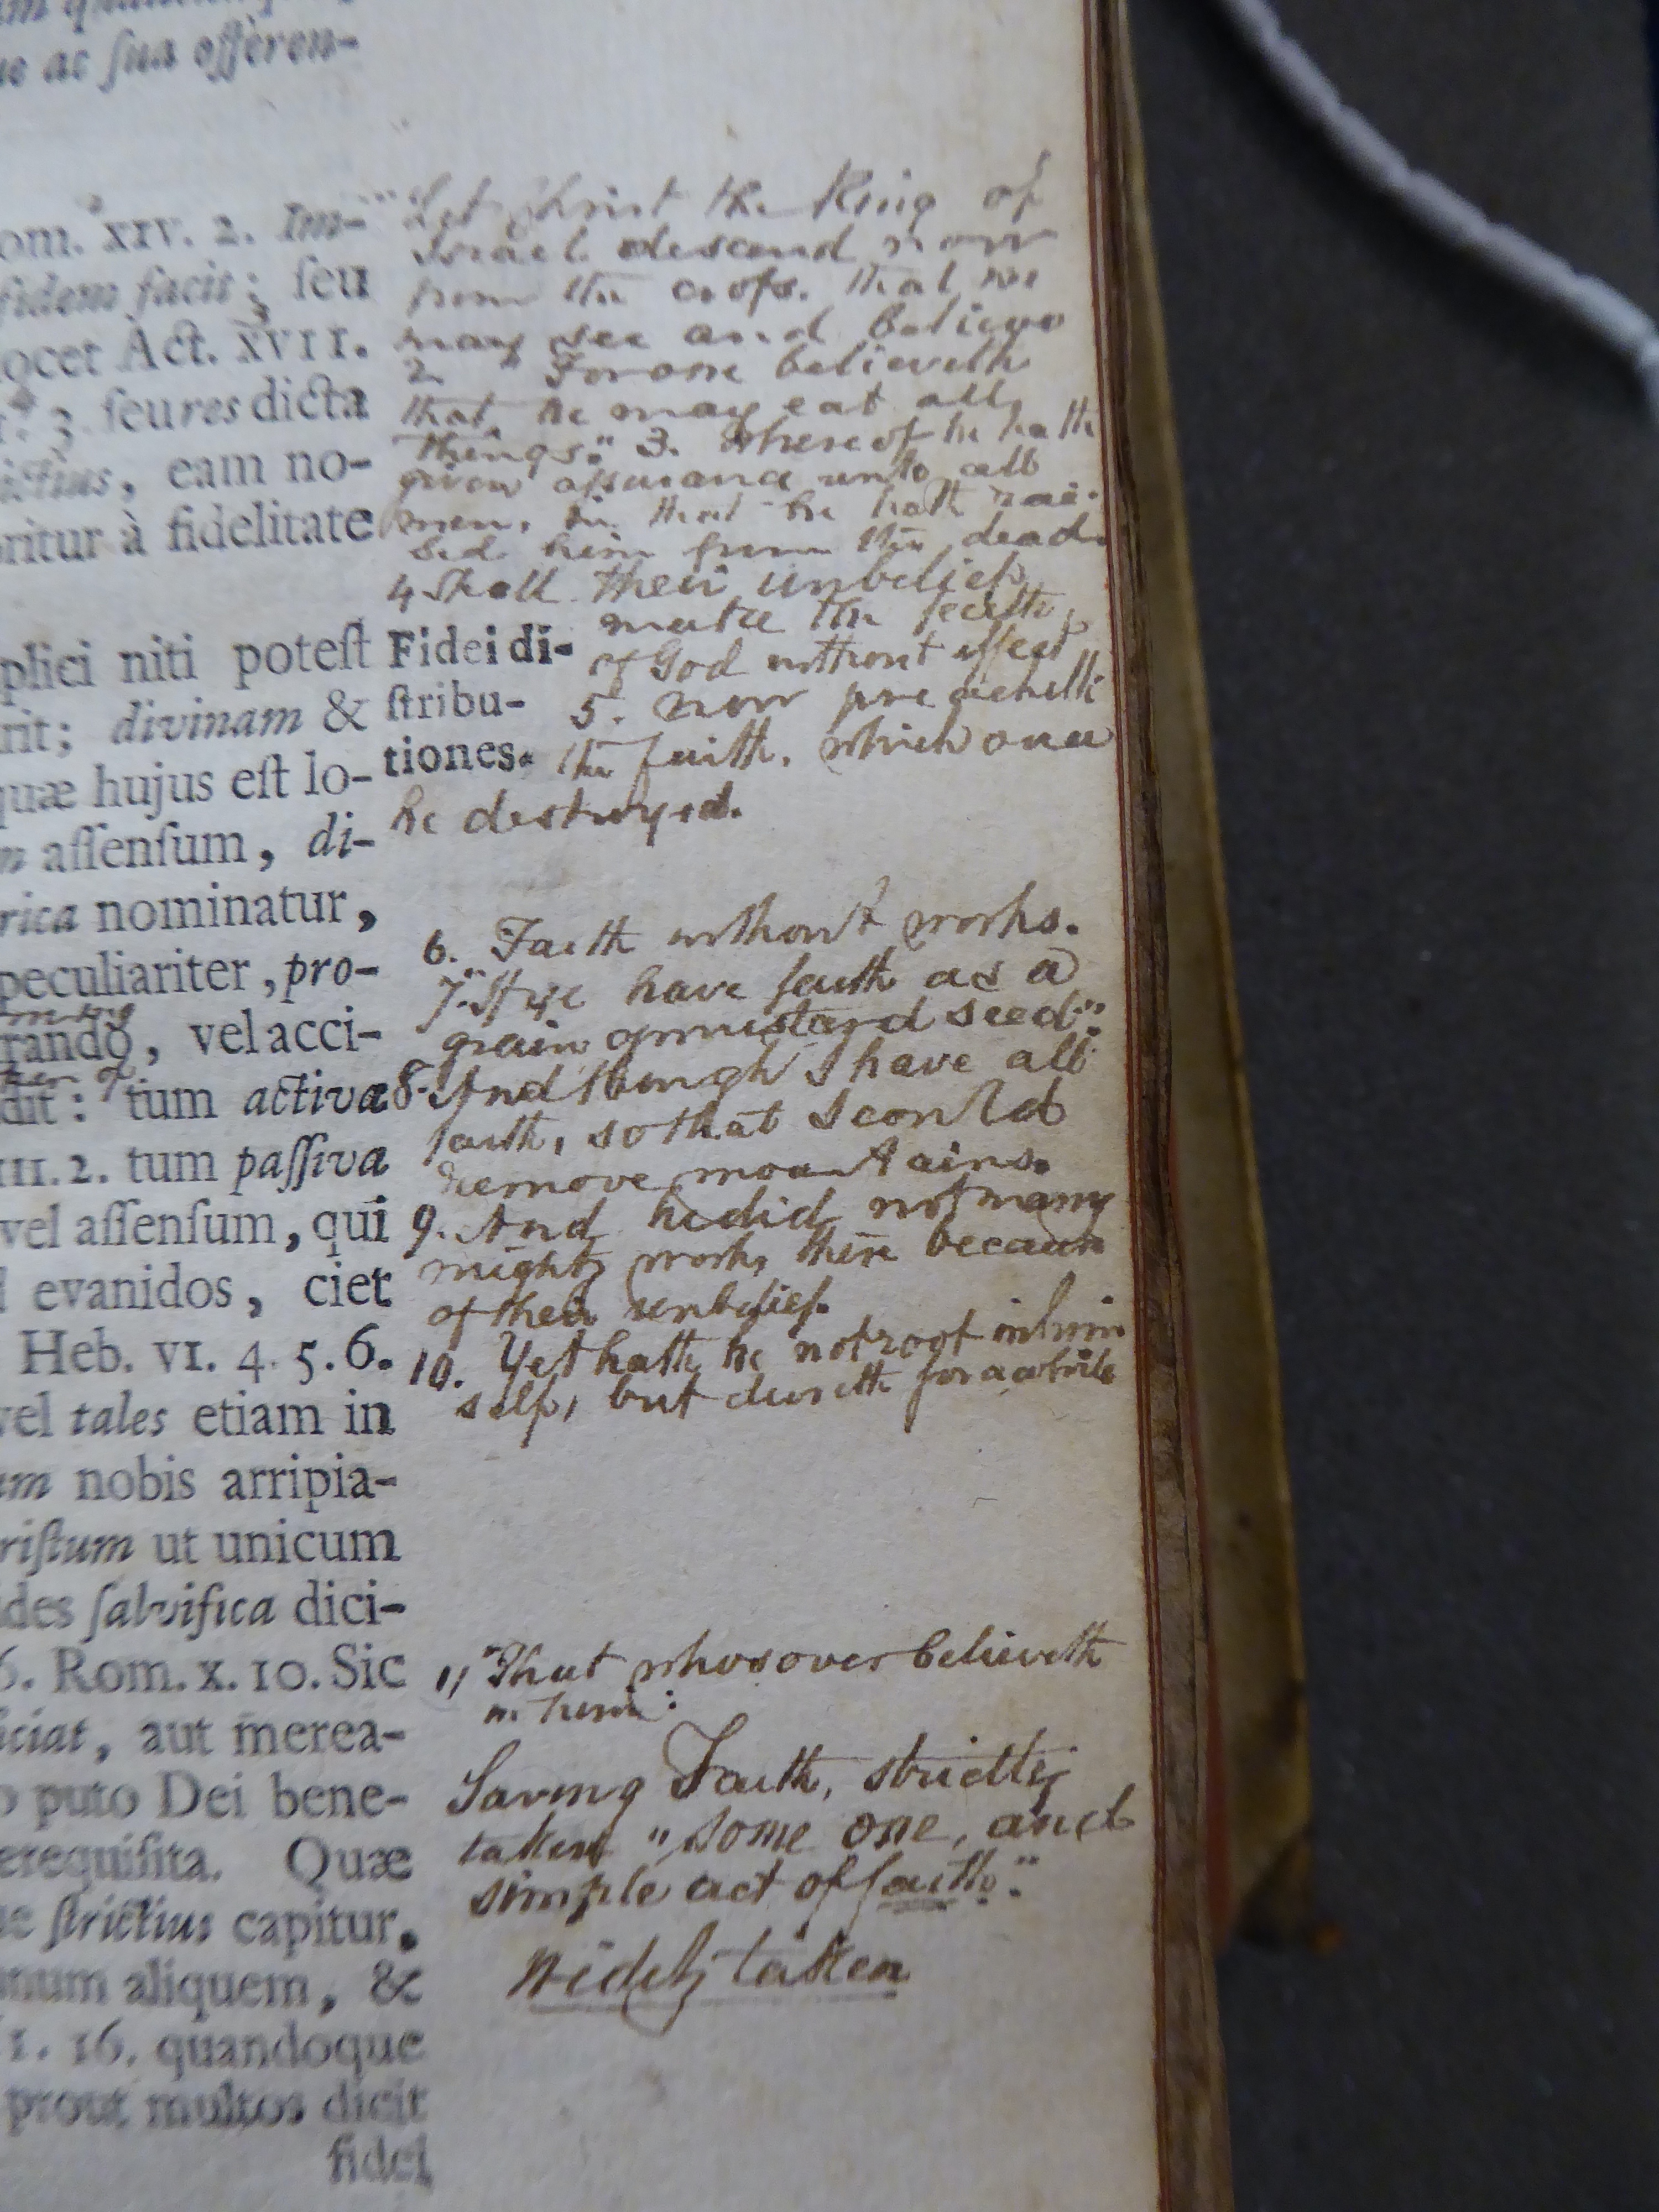 ue ac ſua offeren-
om. XIV. 2. Im-
fidem facit; ſeu
ocet Act. XVII.
3. ſeu res dicta
ictius, eam no-
oritur à fidelitate
plici niti poteſt
rit; divinam &
quæ hujus eſt lo-
n aſſenſum, di-
rica nominatur,
peculiariter, pro-
rando, vel acci-
dit: tum activa
III. 2. tum paſſiva
vel aſſenſum, qui
evanidos, ciet
Heb. VI. 4. 5. 6.
vel tales etiam in
um nobis arripia-
riſtum ut unicum
ides ſalvifica dici-
6. Rom. X. 10. Sic
iciat, aut merea-
o puto Dei bene-
erequiſita. Quæ
ue ſtrictius capitur,
num aliquem, &
1. 16. quandoque
prout multos dicit
fidei
"Let Christ the King of
Israel descend now
from the cross. that we
may see and believe
2 " For one believeth
that he may eat all
things." 3. Whereof he hath
given assurance unto all
men, in that he hath rai-
sed him from the dead.
4 Shall their unbelief
make the faith
of God without effect
Fidei di-
ſtribu-
tiones.
5. Now preacheth
the faith, which once
he destroyed.
6. Faith without works.
7. "If ye have faith as a
grain of mustard seed".
8. And though I have all
faith, so that I could
remove mountains.
9. And he did not many
mighty works there because
of their unbelief.
10. Yet hath he not root in him
self, but dureth for a while
11 "That whosoever believeth
in him:
Saving Faith, strictly
taken "some one, and
simple act of faith."
Widely taken